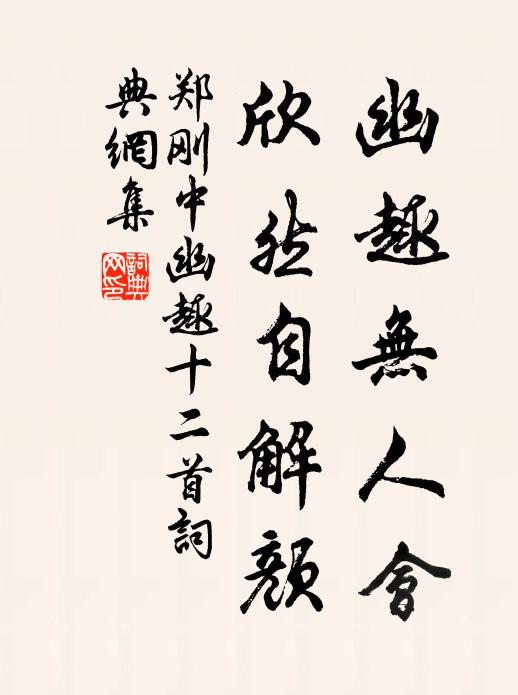 幽趣無人會
欣然自解顏
郑刚中幽趣十二首詞
典網集
詞典
网印